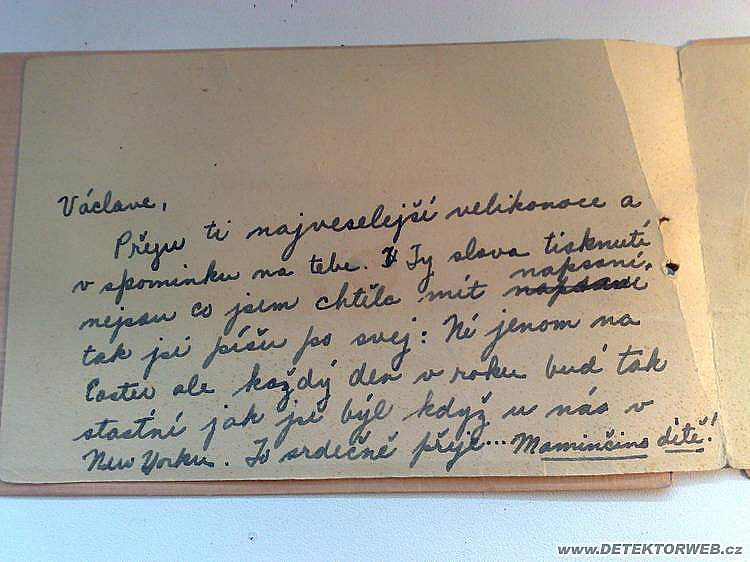 Václave,
Přeju ti najveselejší velikonoce a
v spominku na tebe. Ty slova tisknutí
nejsou co jsem chtěla mít napsaní,
tak jsi píšu po svej: Né jenom na
Easter ale každý den v roku buď tak
stastní jak jsi býl když u nás v
New Yorku. To srdečně přeje... Maminčino dítě!
www.DETEKTORWEB.cz